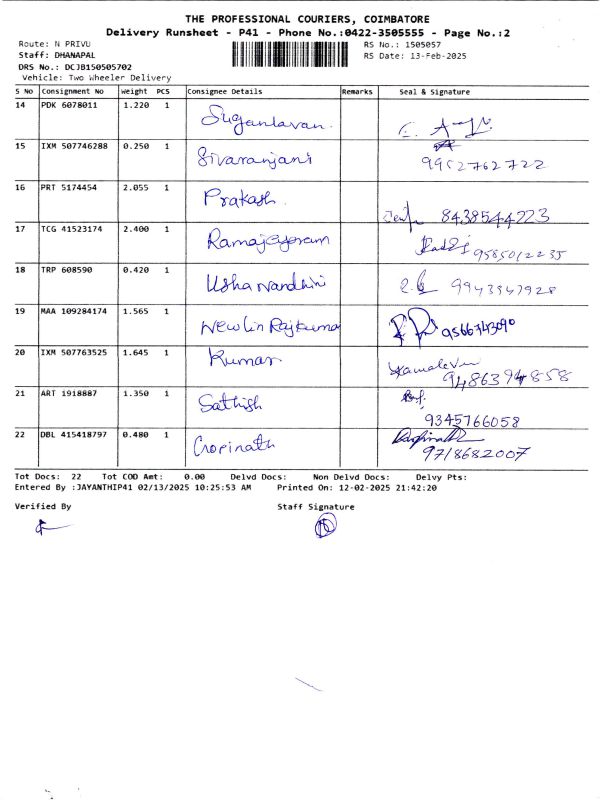 THE PROFESSIONAL COURIERS, COIMBATORE
Delivery Runsheet - P41 - Phone No.:0422-3505555 - Page No.:2
Route: N PRIVU RS No.: 1505057
Staff: DHANAPAL RS Date: 13-Feb-2025
DRS No.: DCJB150505702
Vehicle: Two Wheeler Delivery
S No Consignment No Weight PCS Consignee Details Remarks Seal & Signature
14 PDK 6078011 1.220 1 Suganlavan
15 IXM 507746288 0.250 1 Sivaranjani 9952762722
16 PRT 5174454 2.055 1 Prakash 8438544223
17 TCG 41523174 2.400 1 Ramajayaram 9585012235
18 TRP 608590 0.420 1 Usha Nandhini 9943347928
19 MAA 109284174 1.565 1 Newlin Rajkumar 9566743090
20 IXM 507763525 1.645 1 Kumar 9486394858
21 ART 1918887 1.350 1 Sathish 9345766058
22 DBL 415418797 0.480 1 Gopinath 9718682007
Tot Docs: 22 Tot COD Amt: 0.00 Delvd Docs: Non Delvd Docs: Delvy Pts:
Entered By :JAYANTHIP41 02/13/2025 10:25:53 AM Printed On: 12-02-2025 21:42:20
Verified By Staff Signature